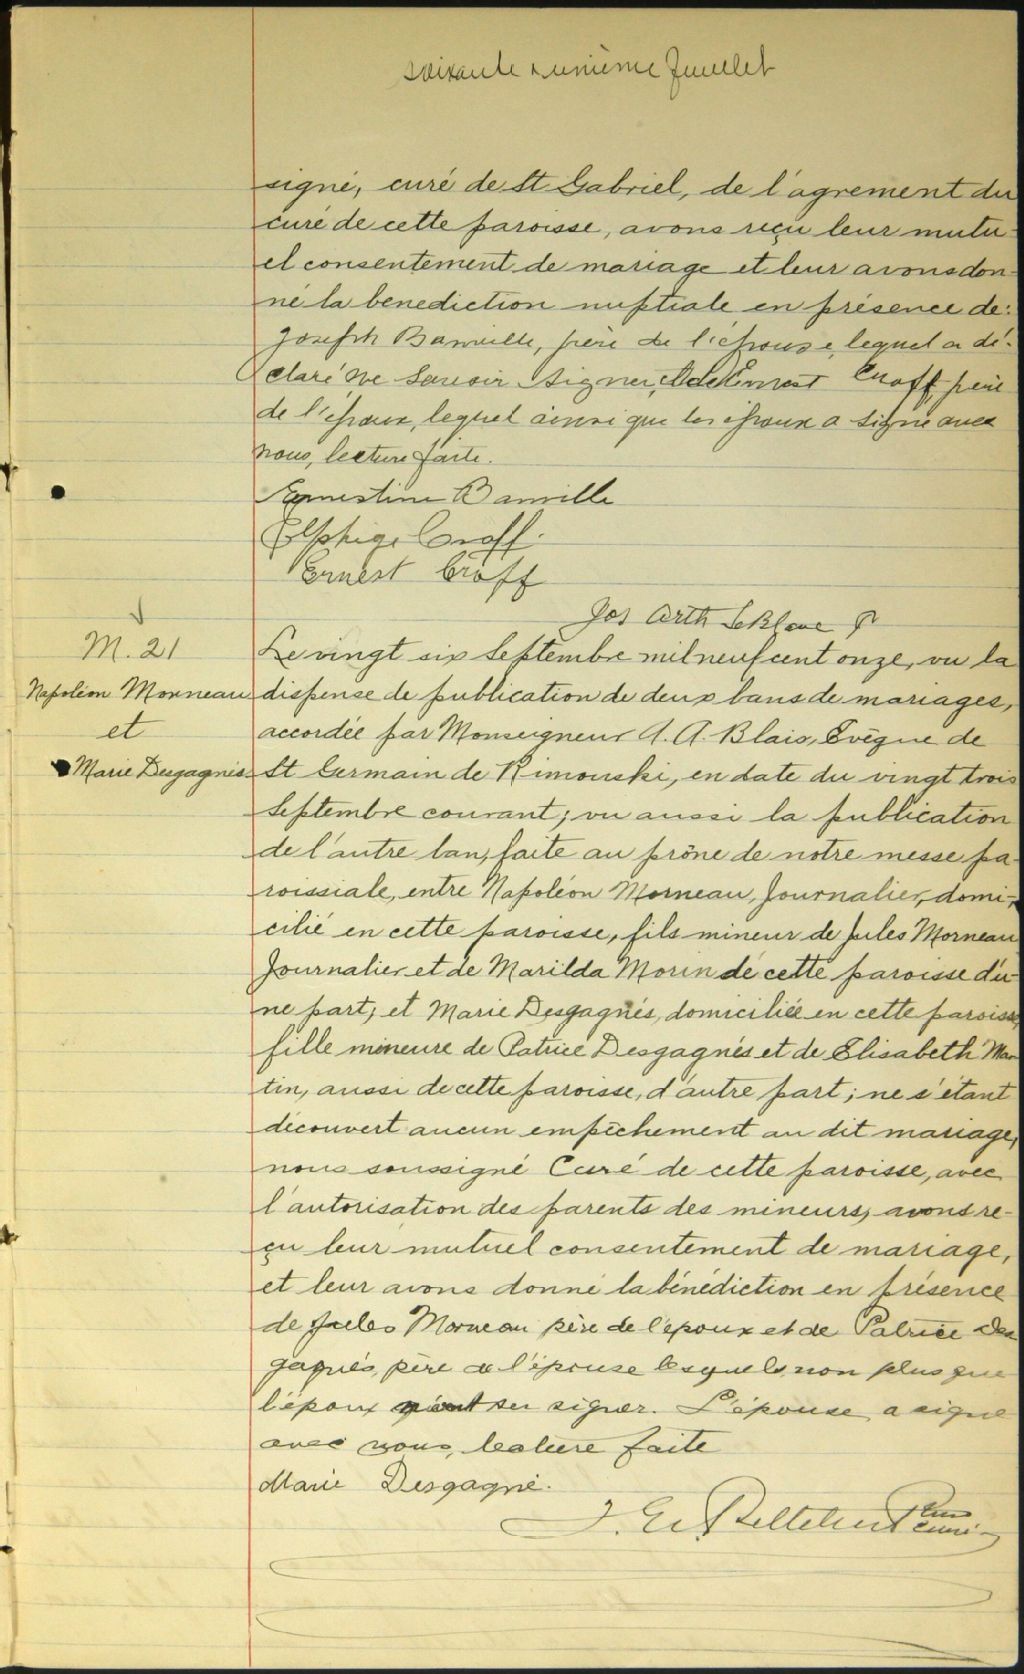 soixante & unième feuillet
signé, curé de St Gabriel, de l'agrement du
curé de cette paroisse, avons reçu leur mutu-
el consentement de mariage et leur avons don-
né la benediction nuptiale en présence de:
Joseph Banville, père de l'épouse, lequel a dé-
claré ne savoir signer, et de Ernest Croff, père
de l'époux, lequel ainsi que les époux a signé avec
nous, lecture faite.
Ernestine Banville
Elphige Croff.
Ernest Croff
Jos Arth LeBlanc
M. 21
Napoléon Morneau
et
Marie Desgagnés
Le vingt six Septembre mil neuf cent onze, vu la
dispense de publication de deux bans de mariages,
accordée par Monseigneur A. A. Blais, Evêque de
St Germain de Rimouski, en date du vingt trois
Septembre courant; vu aussi la publication
de l'autre ban, faite au prône de notre messe pa-
roissiale, entre Napoléon Morneau, Journalier, domi-
cilié en cette paroisse, fils mineur de Jules Morneau
Journalier et de Marilda Morin de cette paroisse d'u-
ne part; et Marie Desgagnés, domiciliée en cette paroisse,
fille mineure de Patrice Desgagnés et de Elisabeth Mar-
tin, aussi de cette paroisse, d'autre part; ne s'étant
découvert aucun empêchement au dit mariage,
nous soussigné Curé de cette paroisse, avec
l'autorisation des parents des mineurs, avons re-
çu leur mutuel consentement de mariage,
et leur avons donné la bénédiction en présence
de Jules Morneau père de l'époux et de Patrice Des
gagnés, père de l'épouse lesquels non plus que
l'époux n'ont su signer. L'épouse a signé
avec nous, lecture faite
Marie Desgagné.
J. E. Pelletier Ptre
curé